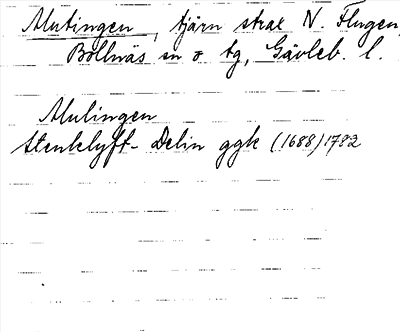 Mutingen, tjärn strax N. Flugen,
Bollnäs sn o. tg, Gävleb. l.
Mulingen
Stenklyft- Delin ggk (1688) 1782